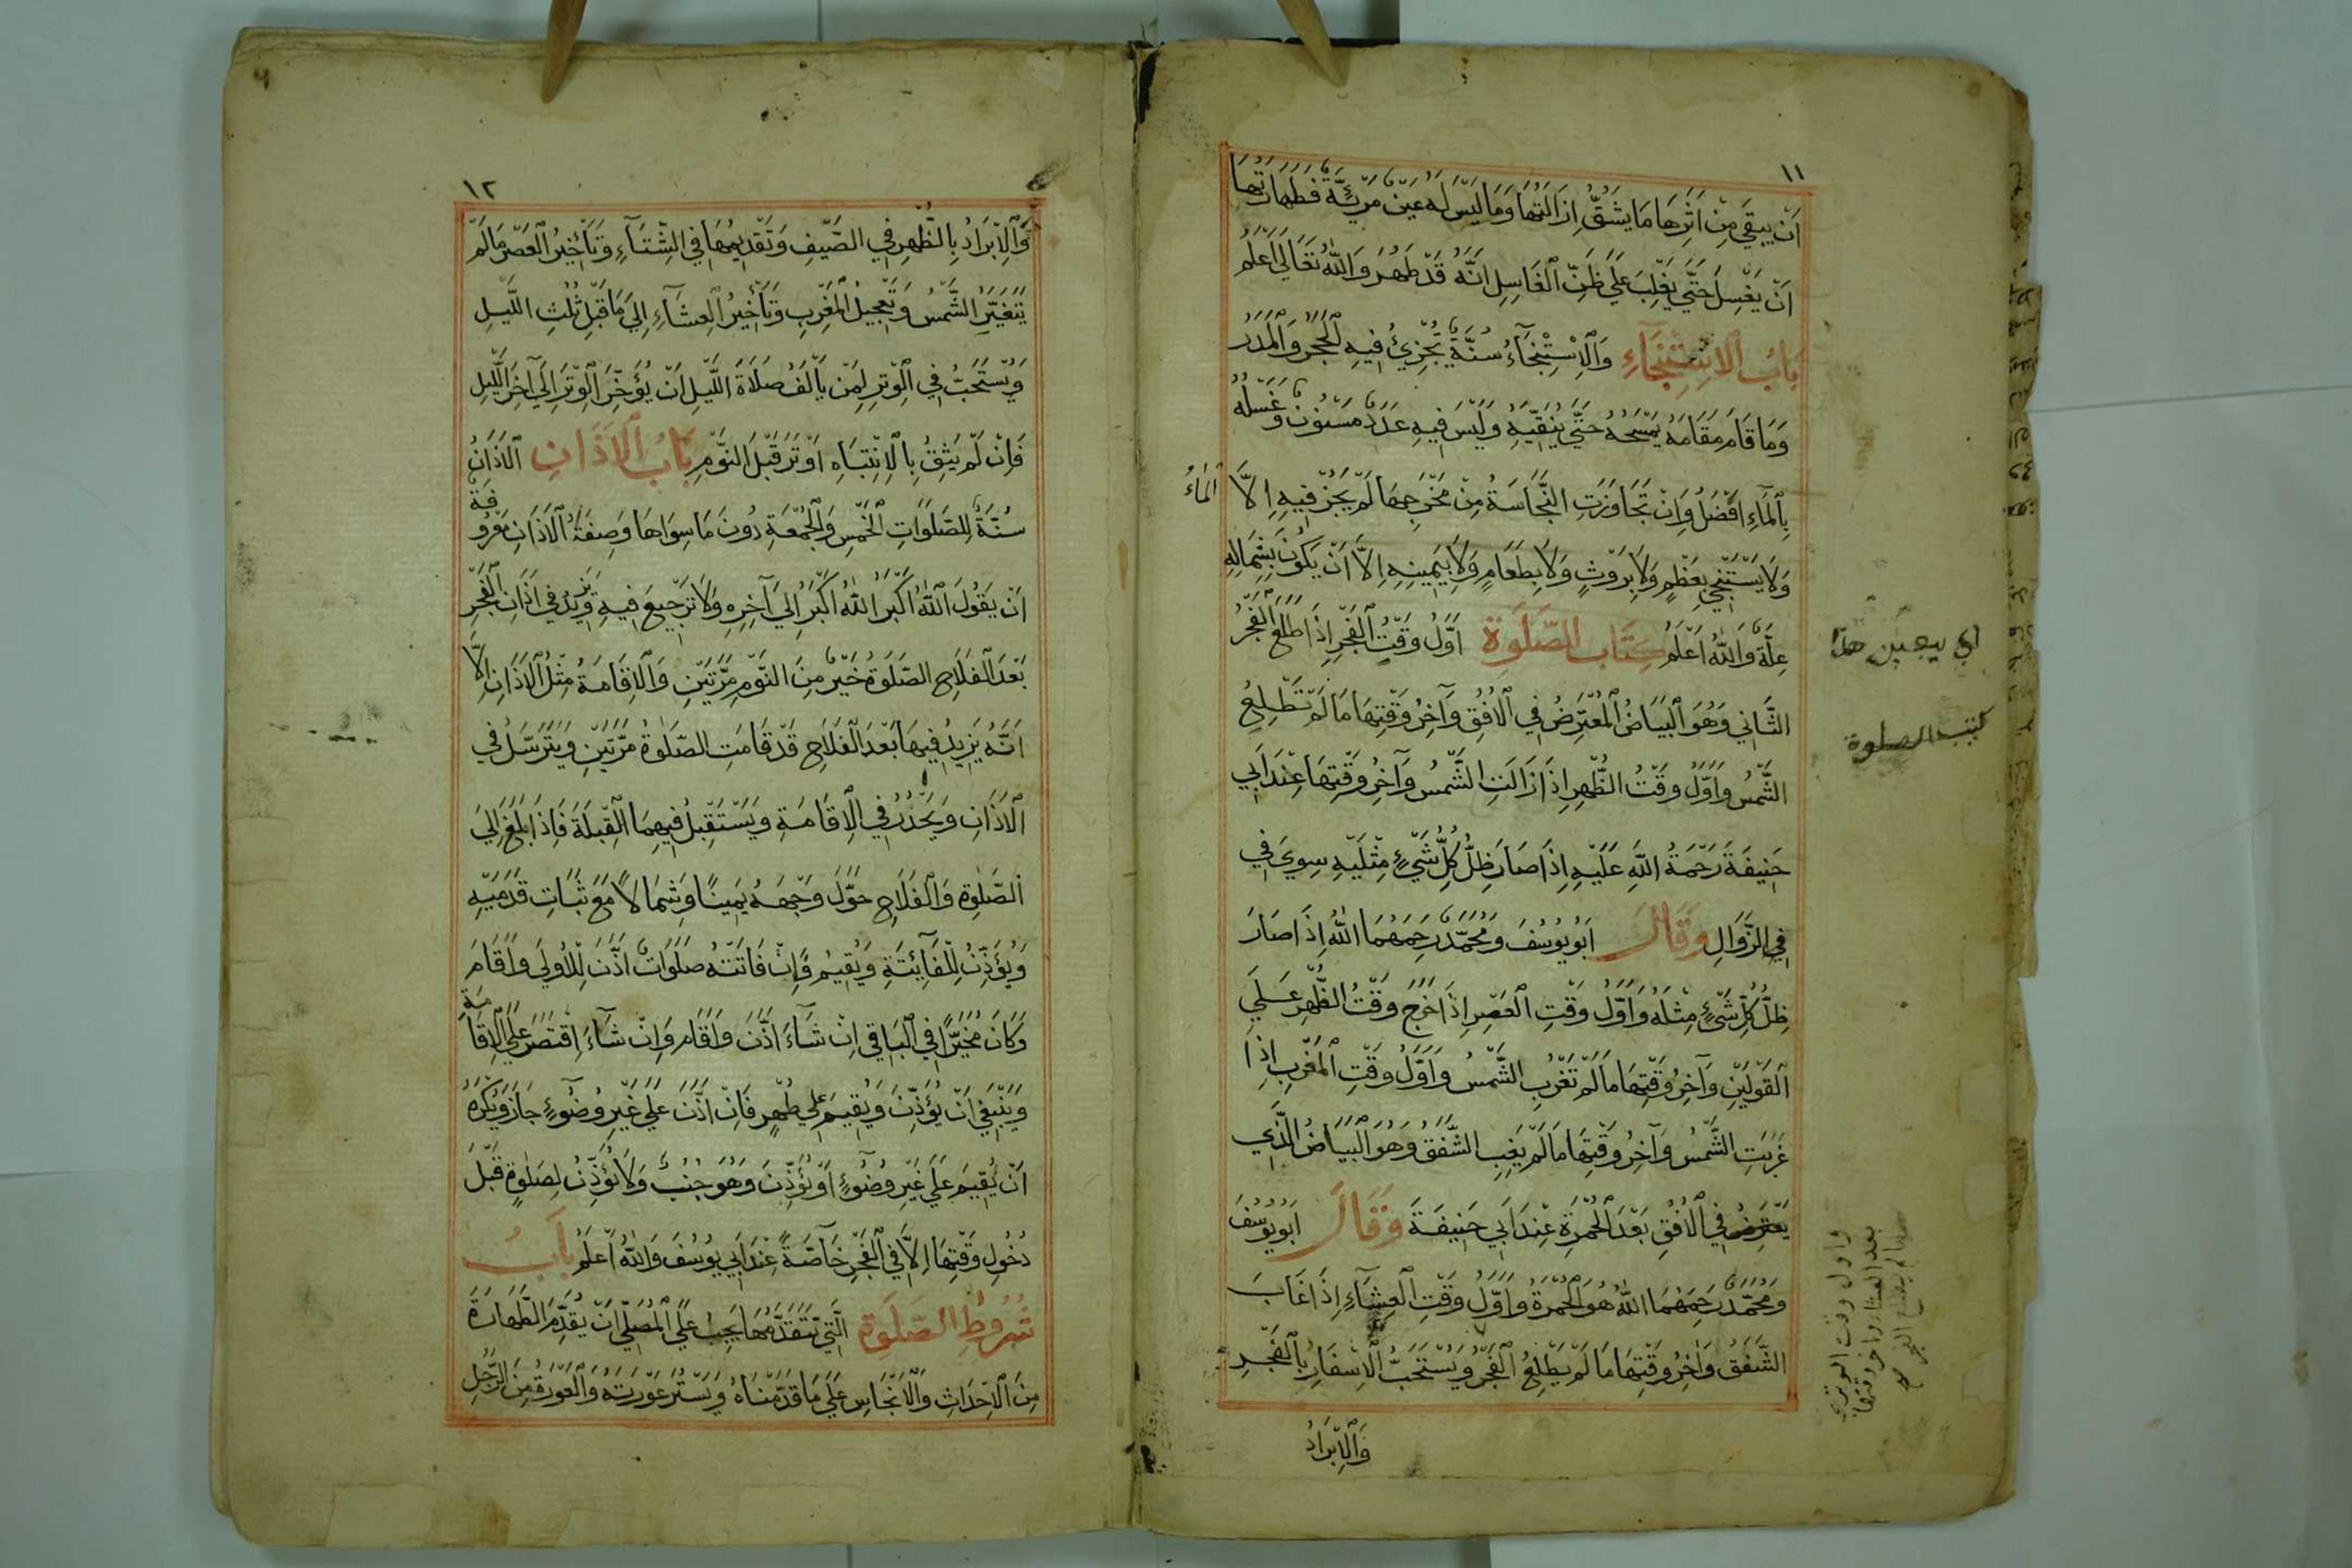 ١١
اَنْ يَبْقَي مِنْ اَثَرِهَا مَا يَشُقُّ اِزَالَتُهَا وَمَا لَيْسَ لَهُ عَيْنٌ مَرْئِيَّةٌ فَطَهَارَتُهَا
اَنْ يَغْسِلَ حَتَّي يَغْلِبَ عَلَي ظَنِّ الْغَاسِلِ اَنَّهُ قَدْ طَهُرَ وَاللّٰهُ تَعَالَي اَعْلَمُ
بَابُ الْاِسْتِنْجَآءِ وَالْاِسْتِنْجَآءُ سُنَّةٌ تُجْزِئُ فِيهِ الْحَجَرُ وَالْمَدَرُ
وَمَا قَامَ مَقَامَهُ يَمْسَحُهُ حَتَّي يُنْقِيَهُ وَلَيْسَ فِيهِ عَدَدٌ مَسْنُونٌ وَغَسْلُهُ
بِالْمَآءِ اَفْضَلُ وَاِنْ تَجَاوَزَتِ النَّجَاسَةُ مِنْ مَخْرَجِهَا لَمْ يَجُزْ فِيهِ اِلَّا
الْمَاءُ
وَلَا يَسْتَنْجِي بِعَظْمٍ وَلَا بِرَوْثٍ وَلَا بِطَعَامٍ وَلَا بِيَمِينِهِ اِلَّا اَنْ يَكُونَ بِشِمَالِهِ
عِلَّةٌ وَاللّٰهُ اَعْلَمُ كِتَابُ الصَّلَوةِ اَوَّلُ وَقْتِ الْفَجْرِ اِذَا طَلَعَ الْفَجْرُ
الثَّانِي وَهُوَ الْبَيَاضُ الْمُعْتَرِضُ فِي الْاُفُقِ وَآخِرُ وَقْتِهَا مَا لَمْ تَطْلِعُ
الشَّمْسُ وَاَوَّلُ وَقْتُ الظُّهْرِ اِذَا زَالَتِ الشَّمْسُ وَآخِرُ وَقْتِهَا عِنْدَ اَبِي
حَنِيفَةَ رَحْمَةُ اللّٰهِ عَلَيْهِ اِذَا صَارَ ظِلُّ كُلِّ شَيْءٍ مِثْلَيْهِ سِوَيَ فِي
فِي الزَّوَالِ وَقَالَ اَبُو يُوسُفَ وَمُحَمَّدٌ رَحِمَهُمَا اللّٰهُ اِذَا صَارَ
ظِلُّ كُلِّ شَيْءٍ مِثْلَهُ وَاَوَّلُ وَقْتِ الْعَصْرِ اِذَا خَرَجَ وَقْتُ الظُّهْرِ عَلَي
الْقَوْلَيْنِ وَآخِرُ وَقْتِهَا مَا لَمْ تَغْرُبِ الشَّمْسُ وَاَوَّلُ وَقْتِ الْمَغْرِبِ اِذَا
غَرَبَتِ الشَّمْسُ وَآخِرُ وَقْتِهَا مَا لَمْ يَغِبِ الشَّفَقُ وَهُوَ الْبَيَاضُ الَّذِي
يَعْتَرِضُ فِي الْاُفُقِ بَعْدَ الْحُمْرَةِ عِنْدَ اَبِي حَنِيفَةَ وَقَالَ اَبُو يُوسُفَ
وَمُحَمَّدٌ رَحِمَهُمَا اللّٰهُ هُوَ الْحُمْرَةُ وَاَوَّلُ وَقْتِ الْعِشَآءِ اِذَا غَابَ
الشَّفَقُ وَاٰخِرُ وَقْتِهَا مَا لَمْ يَطْلِعُ الْفَجْرُ وَيُسْتَحَبُّ الْاِسْفَارُ بِالْفَجْرِ
وَالْاِبْرَادُ
كتب الصلوة
واول وقت الوتر
بعد العشاء واخر وقتها
مالم يطلع الفجر
١٢
وَالْاِبْرَادُ بِالظُّهْرِ فِي الصَّيْفِ وَتَقْدِيمُهَا فِي الشِّتَآءِ وَتَأْخِيرُ الْعَصْرِ مَا لَمْ
يَتَغَيَّرِ الشَّمْسُ وَتَعْجِيلُ الْمَغْرِبِ وَتَأْخِيرُ الْعِشَآءِ اِلَي مَا قَبْلَ ثُلُثِ اللَّيْلِ
وَيُسْتَحَبُّ فِي الْوِتْرِ لِمَنْ يَأْلَفُ صَلَاةَ اللَّيْلِ اَنْ يُؤَخِّرَ الْوِتْرَ اِلَي آخِرِ اللَّيْلِ
فَاِنْ لَمْ يَثِقْ بِالْاِنْتِبَاهِ اَوْتَرَ قَبْلَ النَّوْمِ بَابُ الْاَذَانِ اَلْاَذَانُ
سُنَّةٌ لِلصَّلَوَاتِ الْخَمْسِ وَالْجُمْعَةِ دُونَ مَا سِوَاهَا وَصِفَةُ الْاَذَانِ مَعْرُوفَةٌ
اَنْ يَقُولَ اللّٰهُ اَكْبَرُ اللّٰهُ اَكْبَرُ اِلَي آخِرِهِ وَلَا تَرْجِيعَ فِيهِ وَيَزِيدُ فِي اَذَانِ الْفَجْرِ
بَعْدَ الْفَلَاحِ الصَّلَوةُ خَيْرٌ مِنَ النَّوْمِ مَرَّتَيْنِ وَالْاِقَامَةُ مِثْلُ الْاَذَانِ اِلَّا
اَنَّهُ يَزِيدُ فِيهَا بَعْدَ الْفَلَاحِ قَدْ قَامَتِ الصَّلٰوةُ مَرَّتَيْنِ وَيَتَرَسَّلُ فِي
الْاَذَانِ وَيَحْدُرُ فِي الْاِقَامَةِ وَيَسْتَقْبِلُ فِيهِمَا الْقِبْلَةَ فَاِذَا بَلَغَ اِلَيَ
الصَّلٰوةِ وَالْفَلَاحِ حَوَّلَ وَجْهَهُ يَمِينًا وَشِمَالًا مَعَ ثَبَاتِ قَدَمَيْهِ
وَيُؤَذِّنُ لِلْفَآئِتَةِ وَيُقِيمُ وَاِنْ فَاتَتْهُ صَلَوَاتٌ اَذَّنَ لِلْاُولَي وَاَقَامَ
وَكَانَ مُخَيَّرًا فِي الْبَاقِي اِنْ شَآءَ اَذَّنَ وَاَقَامَ وَاِنْ شَآءَ اِقْتَصَرَ عَلَي الْاِقَامَةِ
وَيَنْبَغِي اَنْ يُؤَذِّنَ وَيُقِيمَ عَلَي طُهْرٍ فَاِنْ اَذَّنَ عَلَي غَيْرِ وُضُوءٍ جَازَ وَيُكْرَهُ
اَنْ يُقِيمَ عَلَي غَيْرِ وُضُوءٍ اَوْ يُؤَذِّنَ وَهُوَ جُنُبٌ وَلَا يُؤَذِّنُ لِصَلٰوةٍ قَبْلَ
دُخُولِ وَقْتِهَا اِلَّا فِي الْفَجْرِ خَآصَّةً عِنْدَ اَبِي يُوسُفَ وَاللّٰهُ اَعْلَمُ بَابُ
شُرُوطِ الصَّلَوةِ الَّتِي تَتَقَدَّمُهَا يَجِبُ عَلَي الْمُصَلِّي اَنْ يُقَدِّمَ الطَّهَارَةَ
مِنَ الْاَحْدَاثِ وَالْاَنْجَاسِ عَلَي مَا قَدَّمْنَاهُ وَيَسْتُرَ عَوْرَتَهُ وَالْعَوْرَةُ مِنَ الرَّجُلِ